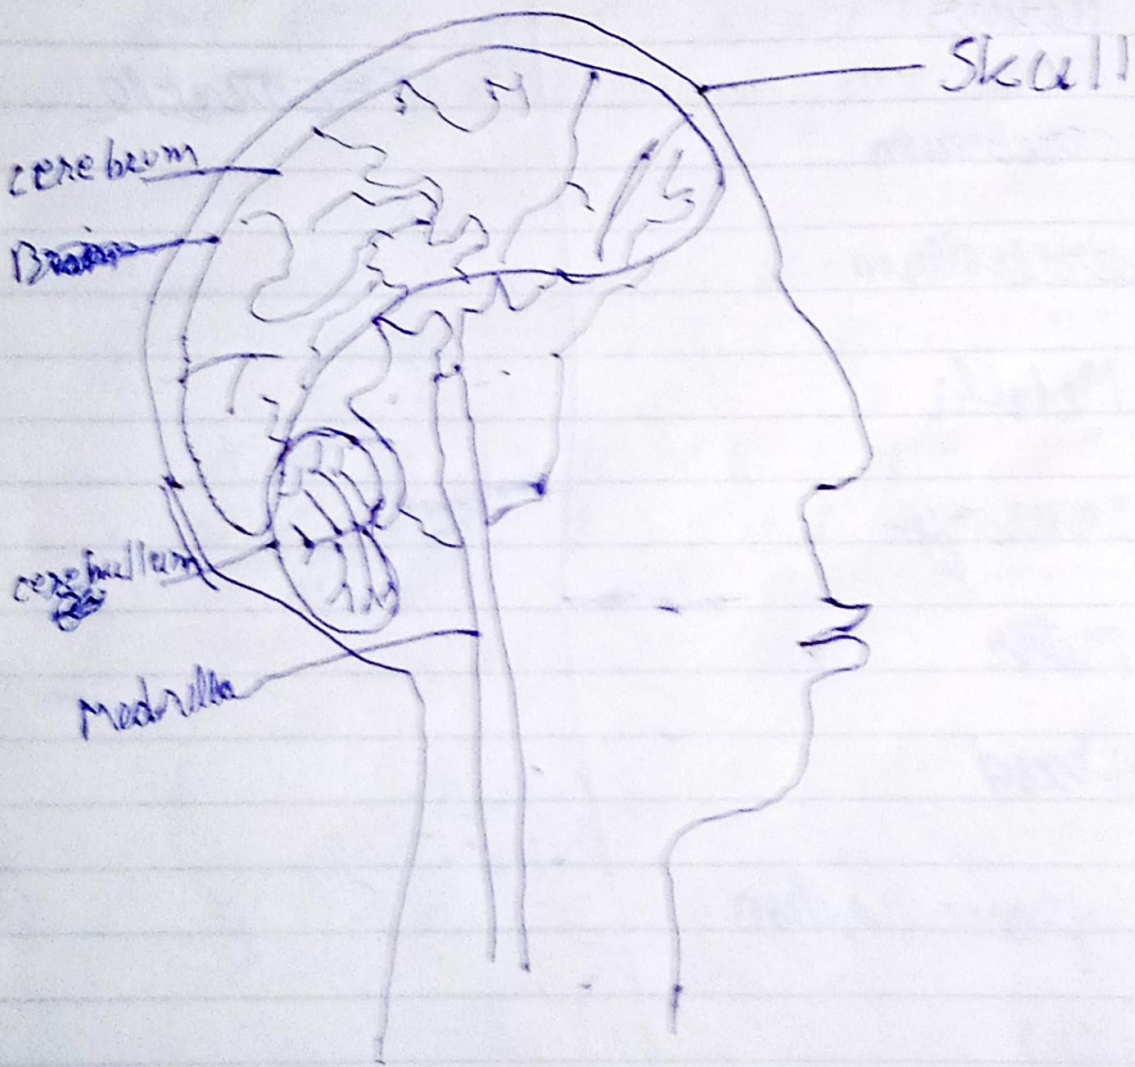 Skull
cerebrum
Brain
cerebullum
Medulla